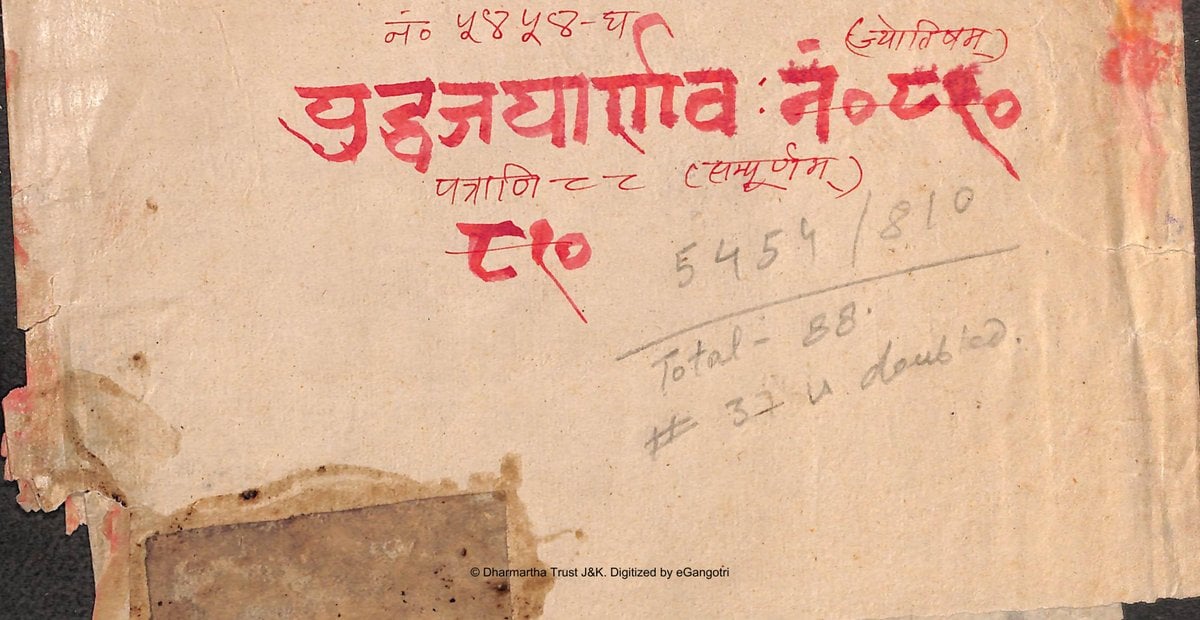 नं० ५४५४-घ
(ज्योतिषम्)
युद्धजयार्णवः नं० ८१०
पत्राणि ८८ (सम्पूर्णम्)
८१०
5454/810
Total - 88.
# 32 is doubled.
© Dharmartha Trust J&K. Digitized by eGangotri